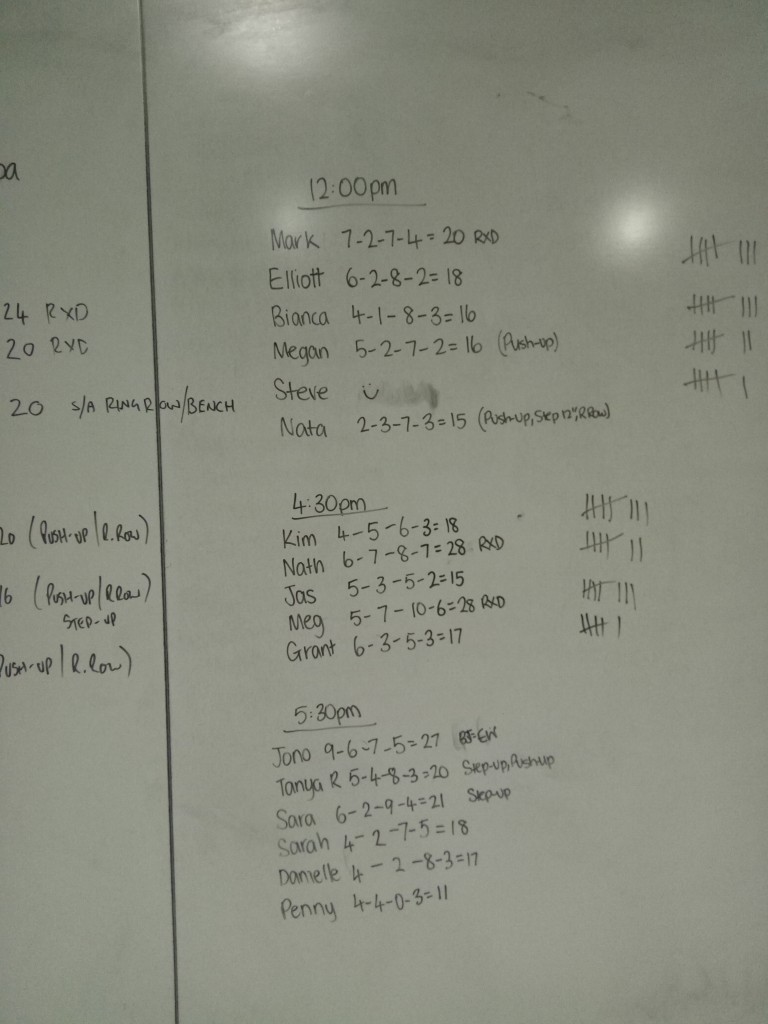 24 RXD
20 RXD
20 S/A RING ROW/BENCH
20 (PUSH-UP/R.ROW)
16 (PUSH-UP/R.ROW)
STEP-UP
PUSH-UP/R.ROW)
12:00pm
Mark 7-2-7-4=20 RXD
Elliott 6-2-8-2=18
Bianca 4-1-8-3=16
Megan 5-2-7-2=16 (Push-up)
Steve
Nata 2-3-7-3=15 (Push-up, Step 12", R.Row)
4:30pm
Kim 4-5-6-3=18
Nath 6-7-8-7=28 RXD
Jas 5-3-5-2=15
Meg 5-7-10-6=28 RXD
Grant 6-3-5-3=17
5:30pm
Jono 9-6-7-5=27
Tanya R 5-4-8-3=20 Step-up, Pushup
Sara 6-2-9-4=21 Step-up
Sarah 4-2-7-5=18
Danielle 4-2-8-3=17
Penny 4-4-0-3=11